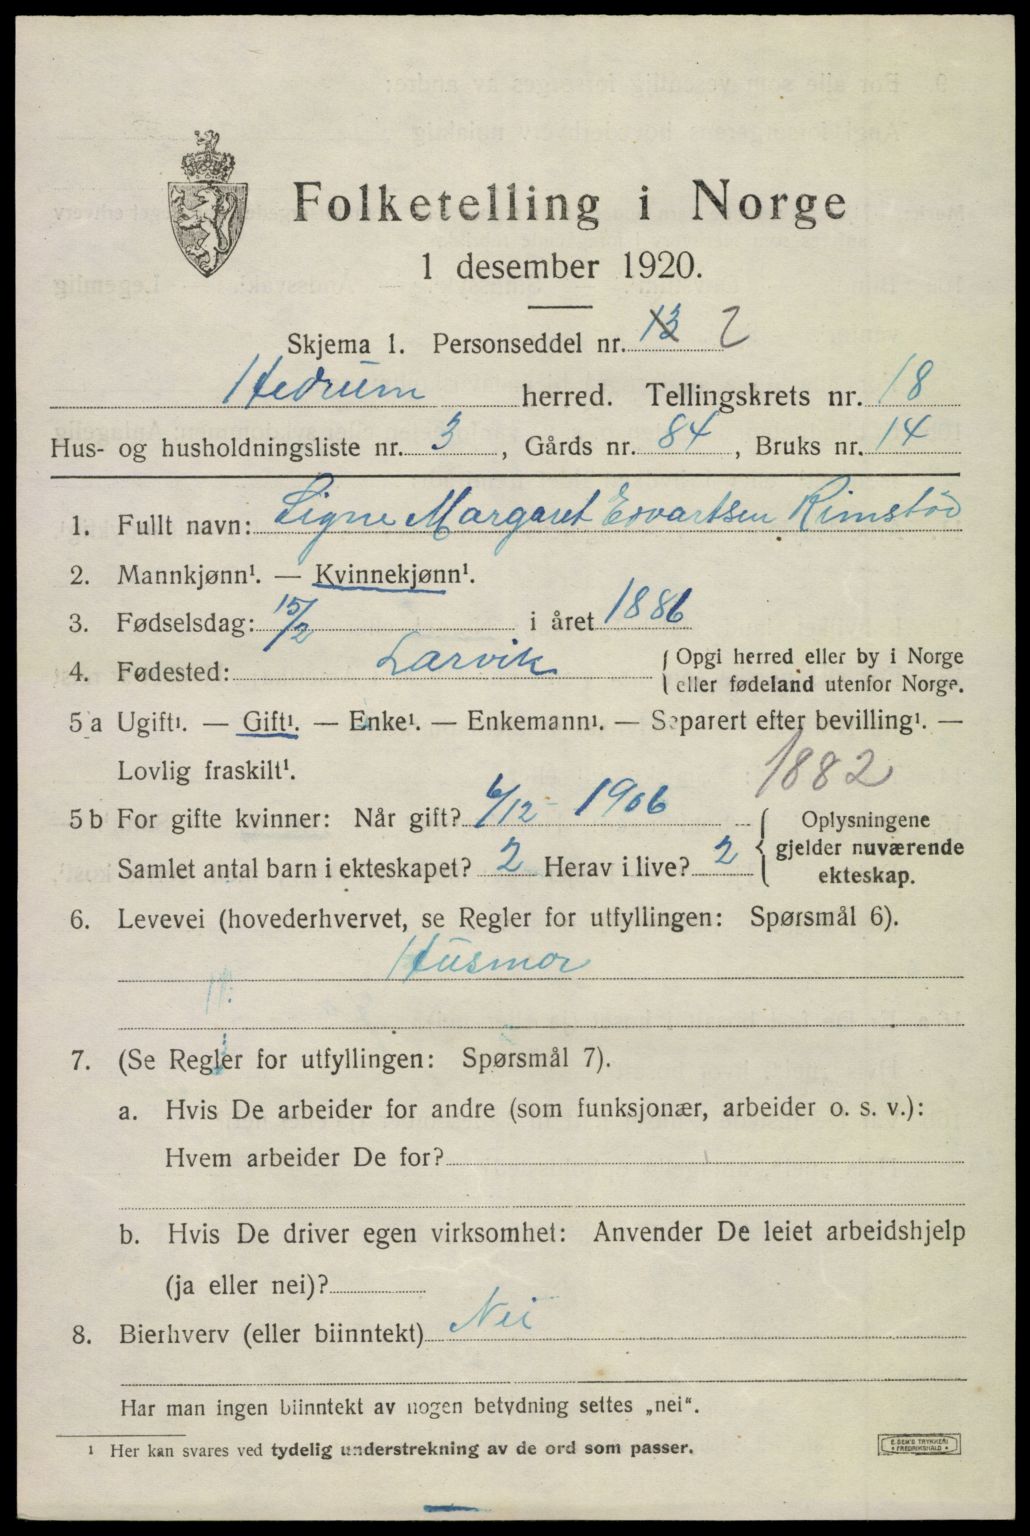 Folketelling i Norge
1 desember 1920.
Skjema 1. Personseddel nr. 13 2
Hedrum herred. Tellingskrets nr. 18
Hus- og husholdningsliste nr. 3, Gårds nr. 84, Bruks nr. 14
1. Fullt navn: Signe Margaret Edvartsen Rimstød
2. Mannkjønn¹. — Kvinnekjønn¹.
3. Fødselsdag: 15/2 i året 1886
4. Fødested: Larvik { Opgi herred eller by i Norge
eller fødeland utenfor Norge.
5 a Ugift¹. — Gift¹. — Enke¹. — Enkemann¹. — Separert efter bevilling¹. —
Lovlig fraskilt¹. 1882
5 b For gifte kvinner: Når gift? 6/12 - 1906 { Oplysningene
Samlet antal barn i ekteskapet? 2 Herav i live? 2 gjelder nuværende
ekteskap.
6. Levevei (hovederhvervet, se Regler for utfyllingen: Spørsmål 6).
Husmor
7. (Se Regler for utfyllingen: Spørsmål 7).
a. Hvis De arbeider for andre (som funksjonær, arbeider o. s. v.):
Hvem arbeider De for?
b. Hvis De driver egen virksomhet: Anvender De leiet arbeidshjelp
(ja eller nei)?
8. Bierhverv (eller biinntekt) Nei
Har man ingen biinntekt av nogen betydning settes „nei“.
¹ Her kan svares ved tydelig understrekning av de ord som passer.
E. SEM'S TRYKKERI
FREDRIKSHALD